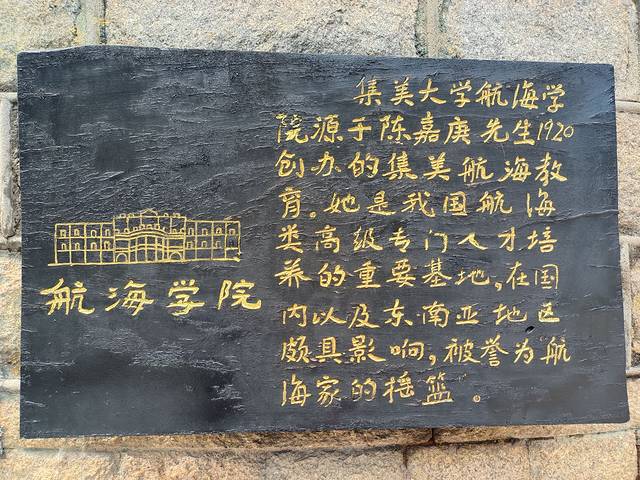 航海学院
集美大学航海学
院源于陈嘉庚先生1920
创办的集美航海教
育。她是我国航海
类高级专门人才培
养的重要基地,在国
内以及东南亚地区
颇具影响,被誉为“航
海家的摇篮”。